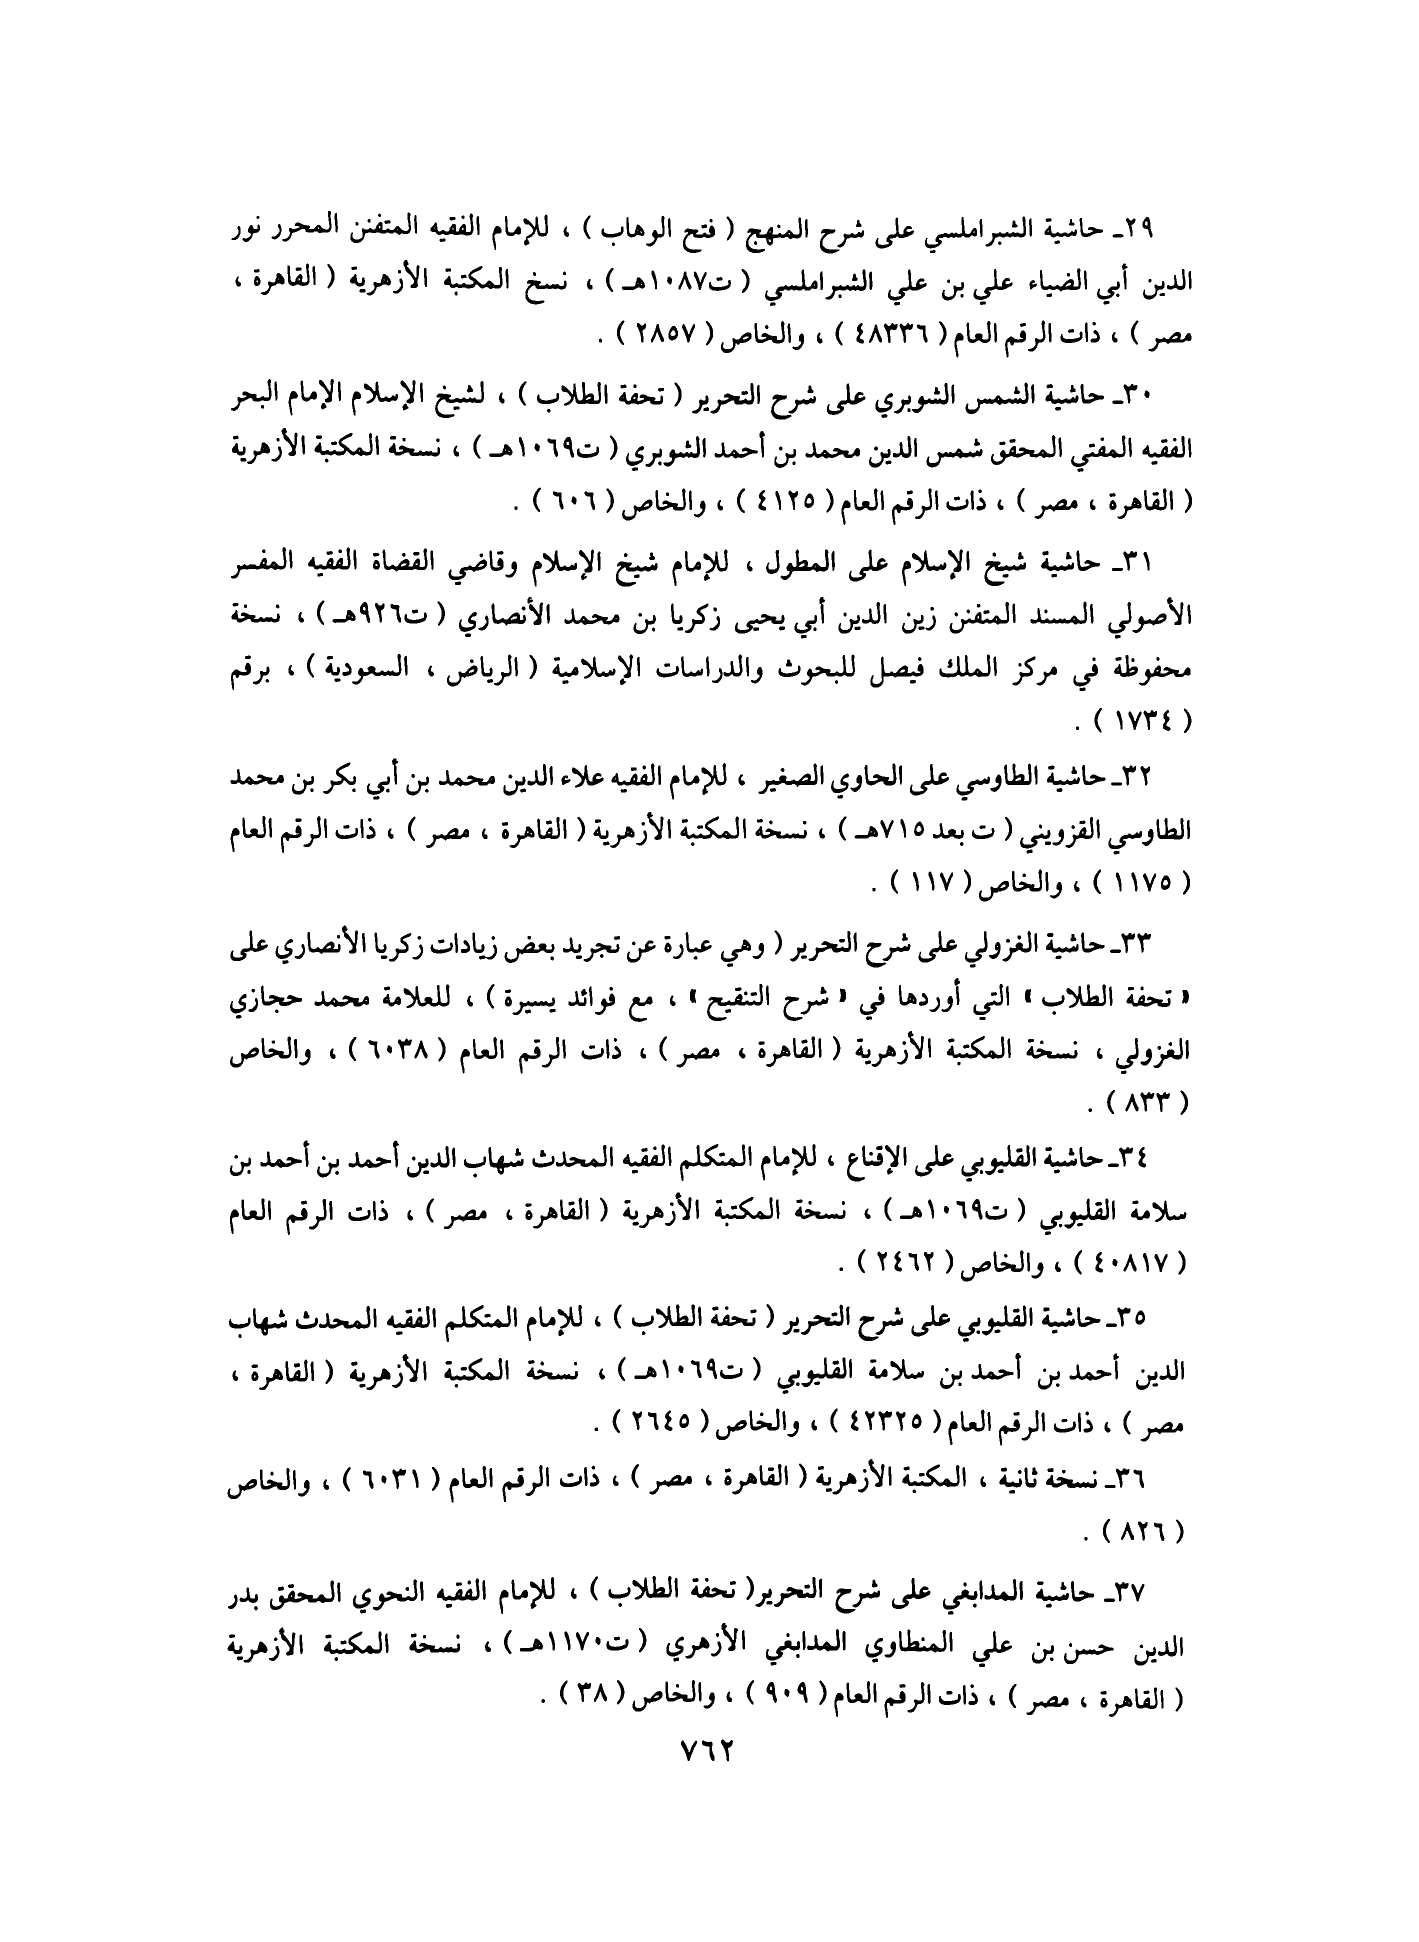 ٢٩ـ حاشية الشبراملسي على شرح المنهج ( فتح الوهاب ) ، للإمام الفقيه المتفنن المحرر نور
الدين أبي الضياء علي بن علي الشبراملسي ( ت١٠٨٧هـ ) ، نسخ المكتبة الأزهرية ( القاهرة ،
مصر ) ، ذات الرقم العام ( ٤٨٣٣٦ ) ، والخاص ( ٢٨٥٧ ) .
٣٠ـ حاشية الشمس الشوبري على شرح التحرير ( تحفة الطلاب ) ، لشيخ الإسلام الإمام البحر
الفقيه المفتي المحقق شمس الدين محمد بن أحمد الشوبري ( ت١٠٦٩هـ ) ، نسخة المكتبة الأزهرية
( القاهرة ، مصر ) ، ذات الرقم العام ( ٤١٢٥ ) ، والخاص ( ٦٠٦ ) .
٣١ـ حاشية شيخ الإسلام على المطول ، للإمام شيخ الإسلام وقاضي القضاة الفقيه المفسر
الأصولي المسند المتفنن زين الدين أبي يحيى زكريا بن محمد الأنصاري ( ت٩٢٦هـ ) ، نسخة
محفوظة في مركز الملك فيصل للبحوث والدراسات الإسلامية ( الرياض ، السعودية ) ، برقم
( ١٧٣٤ ) .
٣٢ـ حاشية الطاوسي على الحاوي الصغير ، للإمام الفقيه علاء الدين محمد بن أبي بكر بن محمد
الطاوسي القزويني ( ت بعد ٧١٥هـ ) ، نسخة المكتبة الأزهرية ( القاهرة ، مصر ) ، ذات الرقم العام
( ١١٧٥ ) ، والخاص ( ١١٧ ) .
٣٣ـ حاشية الغزولي على شرح التحرير ( وهي عبارة عن تجريد بعض زيادات زكريا الأنصاري على
« تحفة الطلاب » التي أوردها في « شرح التنقيح » ، مع فوائد يسيرة ) ، للعلامة محمد حجازي
الغزولي ، نسخة المكتبة الأزهرية ( القاهرة ، مصر ) ، ذات الرقم العام ( ٦٠٣٨ ) ، والخاص
( ٨٣٣ ) .
٣٤ـ حاشية القليوبي على الإقناع ، للإمام المتكلم الفقيه المحدث شهاب الدين أحمد بن أحمد بن
سلامة القليوبي ( ت١٠٦٩هـ ) ، نسخة المكتبة الأزهرية ( القاهرة ، مصر ) ، ذات الرقم العام
( ٤٠٨١٧ ) ، والخاص ( ٢٤٦٢ ) .
٣٥ـ حاشية القليوبي على شرح التحرير ( تحفة الطلاب ) ، للإمام المتكلم الفقيه المحدث شهاب
الدين أحمد بن أحمد بن سلامة القليوبي ( ت١٠٦٩هـ ) ، نسخة المكتبة الأزهرية ( القاهرة ،
مصر ) ، ذات الرقم العام ( ٤٢٣٢٥ ) ، والخاص ( ٢٦٤٥ ) .
٣٦ـ نسخة ثانية ، المكتبة الأزهرية ( القاهرة ، مصر ) ، ذات الرقم العام ( ٦٠٣١ ) ، والخاص
( ٨٢٦ ) .
٣٧ـ حاشية المدابغي على شرح التحرير( تحفة الطلاب ) ، للإمام الفقيه النحوي المحقق بدر
الدين حسن بن علي المنطاوي المدابغي الأزهري ( ت١١٧٠هـ ) ، نسخة المكتبة الأزهرية
( القاهرة ، مصر ) ، ذات الرقم العام ( ٩٠٩ ) ، والخاص ( ٣٨ ) .
٧٦٢